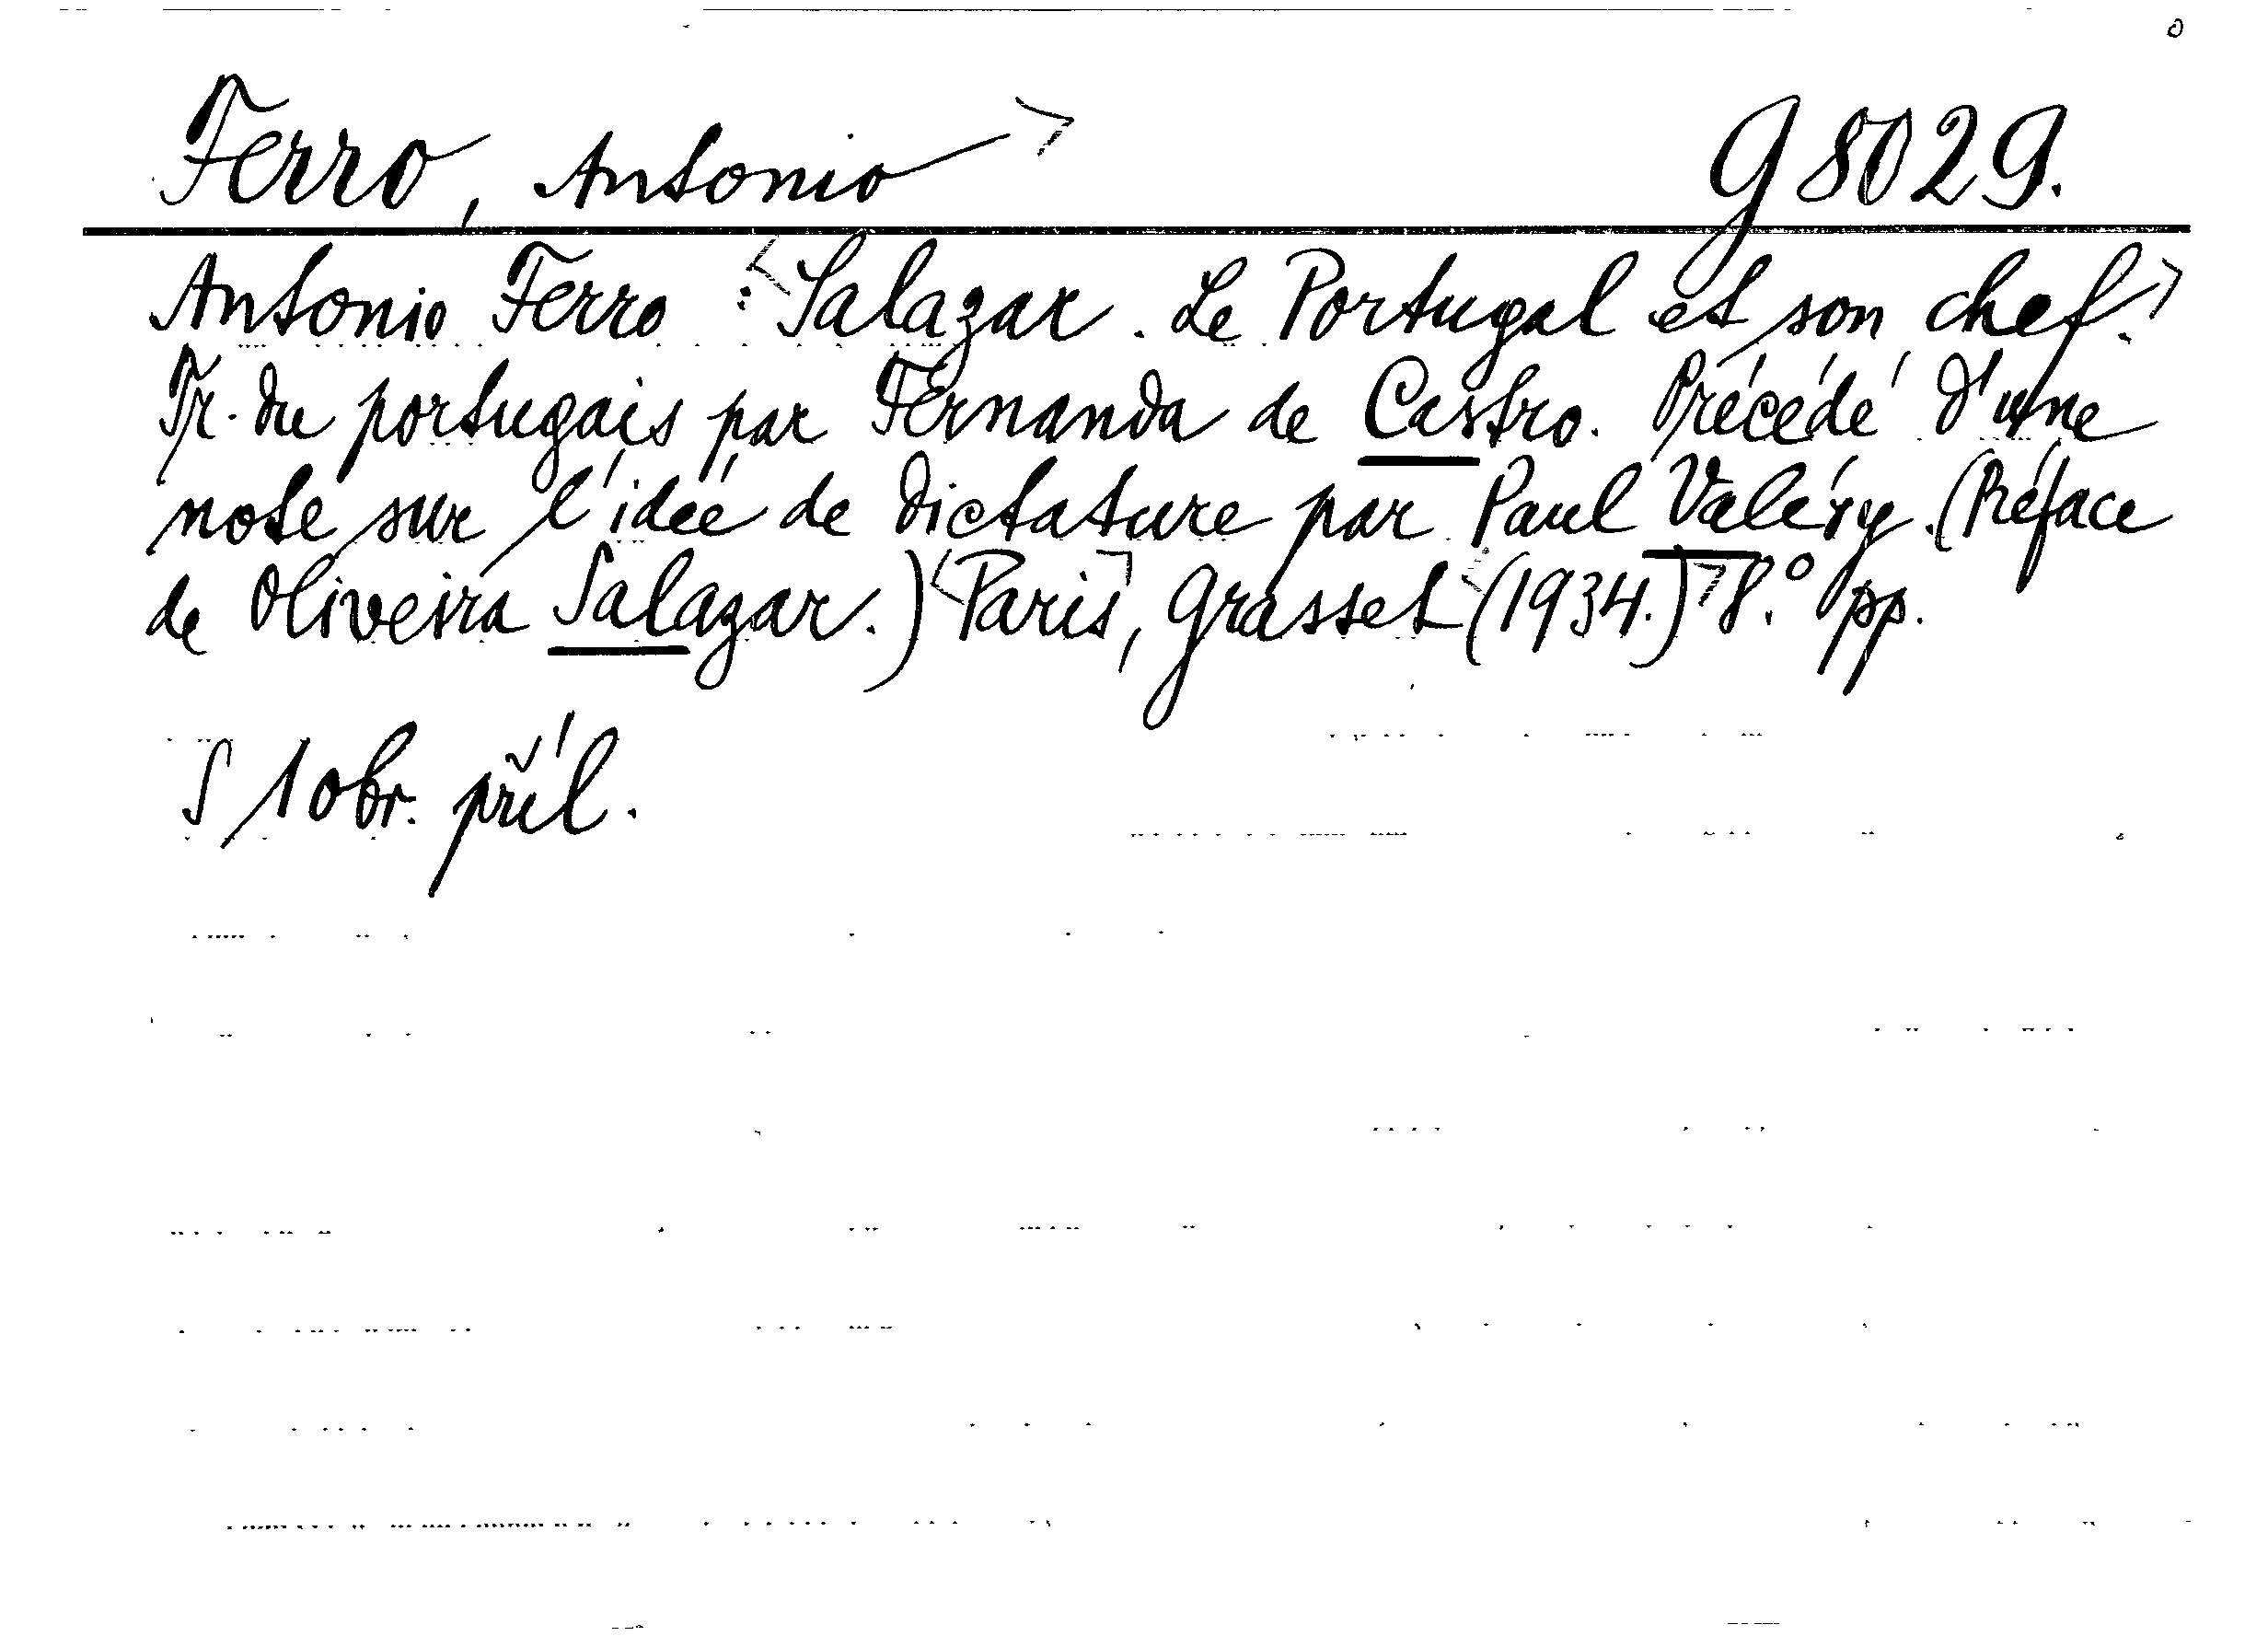 Ferro, Antonio g 8029.
Antonio Ferro : Salazar. Le Portugal et son chef.
Tr. du portugais par Fernanda de Castro. Précédé d'une
note sur l'idée de dictature par Paul Valéry. (Préface
de Oliveira Salazar.) Paris, Grasset (1934.) 8.º pp.
S 1 obr. příl.